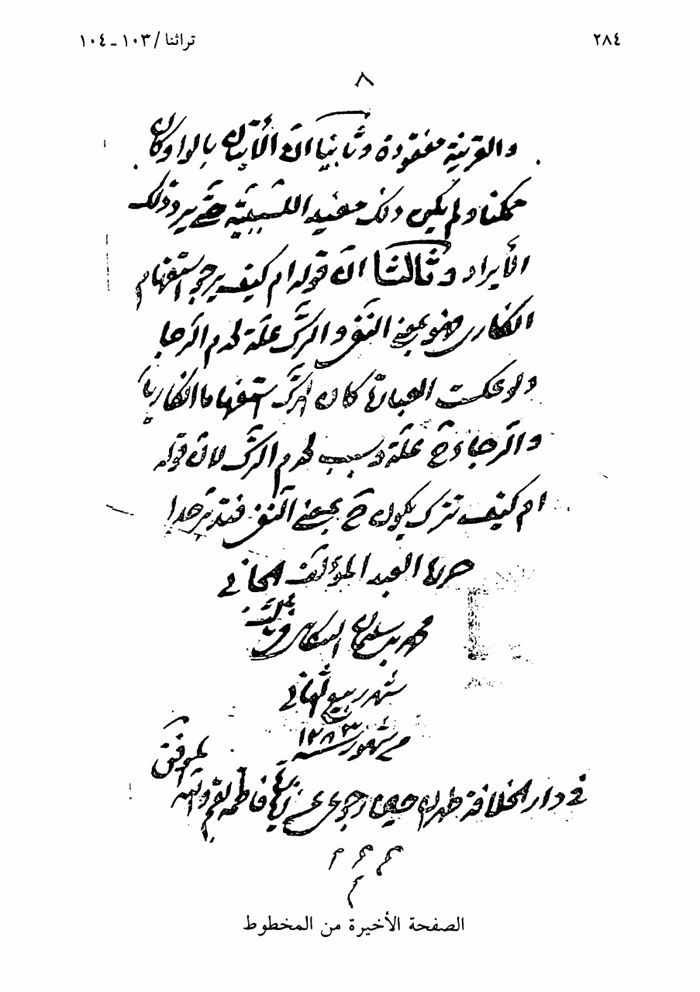 ٢٨٤ تراثنا / ١٠٣ ـ ١٠٤
٨
والقرينة مفقودة وثانيا ان الأتيان بالواو كان
ممكنا ولم يكن ذلك مفيد اللسببية حتى يرد ذلك
الأيراد وثالثا ان قوله ام كيف يرجو استفهام
انكاري وهو بمعنى النفي والترك علة لعدم الرجا
ولو عكست العبارة كان الترك استفهاما انكاريا
والرجاء ح علة وسبب لعدم الترك لان قوله
ام كيف تترك يكون ح بمعنى النفي فتدبر جدا
حررها العبد المؤلف الجاني
محمد بن سليمان التنكابني
شهر ربيع الثاني
من شهور سنة ١٢٨٣
في دار الخلافة طهران حين رجوعي عن زيارة فاطمة بقم والله الموفق
الصفحة الأخيرة من المخطوط